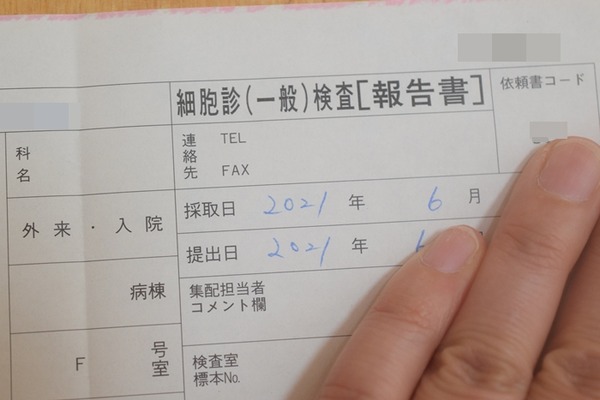 細胞診(一般)検査[報告書]
依頼書コード
科
名
連絡先 TEL
FAX
外来・入院
採取日 2021 年 6 月
提出日 2021 年
病棟
集配担当者
コメント欄
F 号室
検査室
標本No.